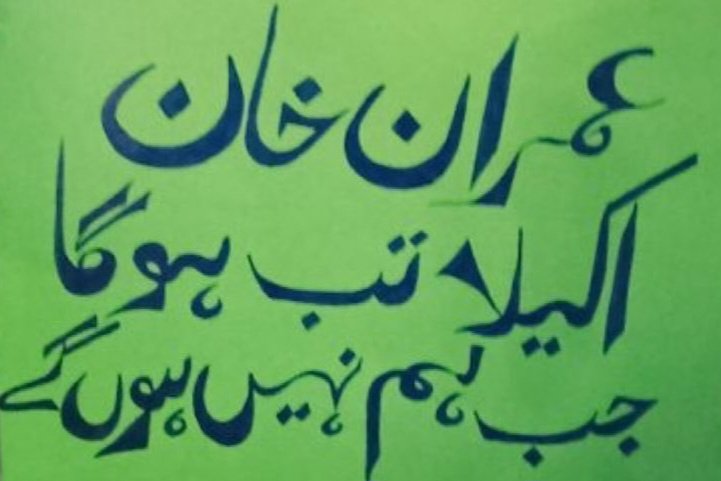 عمران خان
اکیلا تب ہوگا
جب ہم نہیں ہوں گے